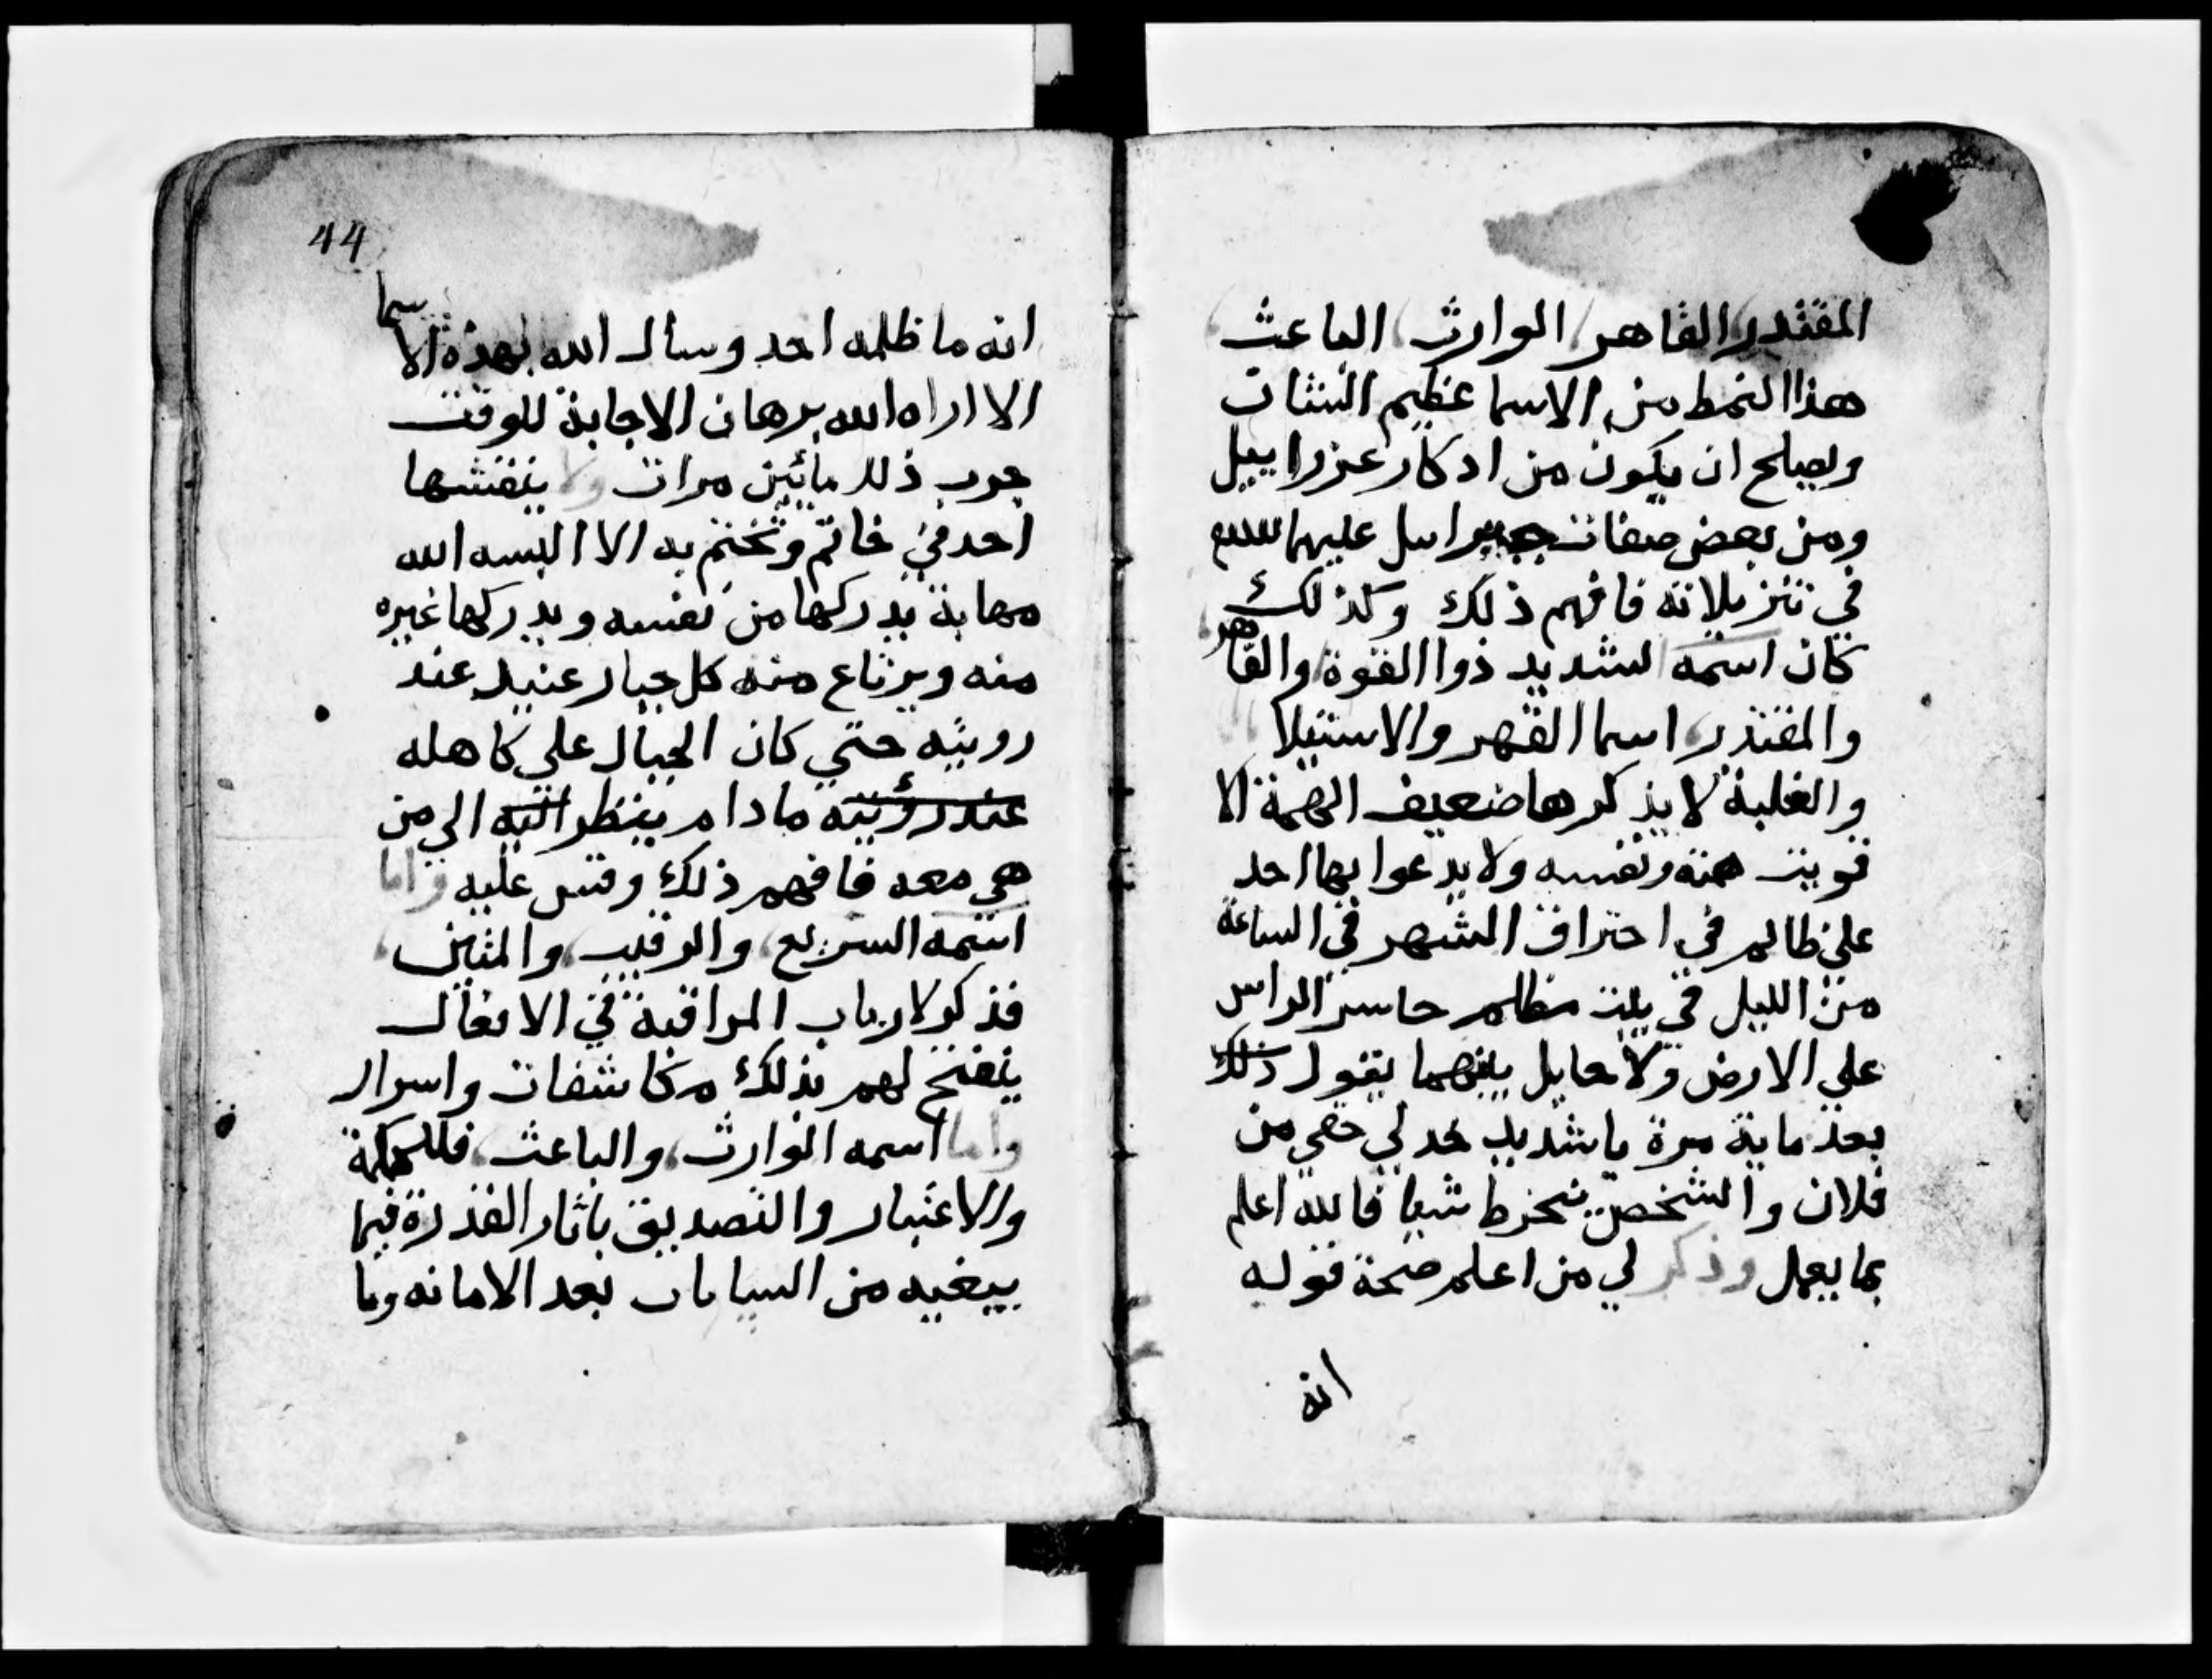 المقتدر القاهر الوارث الباعث
هذا النمط من الاسما عظيم الشان
ويصلح ان يكون من اذكار عزراييل
ومن بعض صفات جبراييل عليهما السلام
في تنزيلاته فافهم ذلك وكذلك
كان اسمه الشديد ذوا القوة والقاهر
والمقتدر اسما القهر والاستيلا
والغلبة لا يذكرها ضعيف الهمة الا
قويت همته ونفسه ولا يدعوا بها احد
على ظالم في احتراق الشهر في الساعة
من الليل في بيت مظلم حاسر الراس
على الارض ولا حايل بينهما يقول ذلك
بعد ماية مرة يا شديد خد لي حقي من
فلان والشخص ينخرط شيا فالله اعلم
بما يعمل وذكر لي من اعلم صحة قوله
انه
44
انه ما ظلمه احد وسال الله بهذه الاسما
الا اراه الله برهان الاجابة للوقت
جرب ذلك مائين مرات ولا ينقشها
احد في خاتم وتختم به الا البسه الله
مهابة يدركها من نفسه ويدركها غيره
منه ويرتاع منه كل جبار عنيد عند
رويته حتي كان الجبال علي كاهله
عند رؤيته ما دام ينظر اليه الي من
هي معه فافهم ذلك وقس عليه واما
اسمه السريع والرقيب والمتين
فذكر لارباب المراقبة في الافعال
ينفتح لهم بذلك مكاشفات واسرار
واما اسمه الوارث والباعث فللحكمة
والاعتبار والتصديق باثار القدرة فيما
يبغيه من السابات بعد الاماته وما